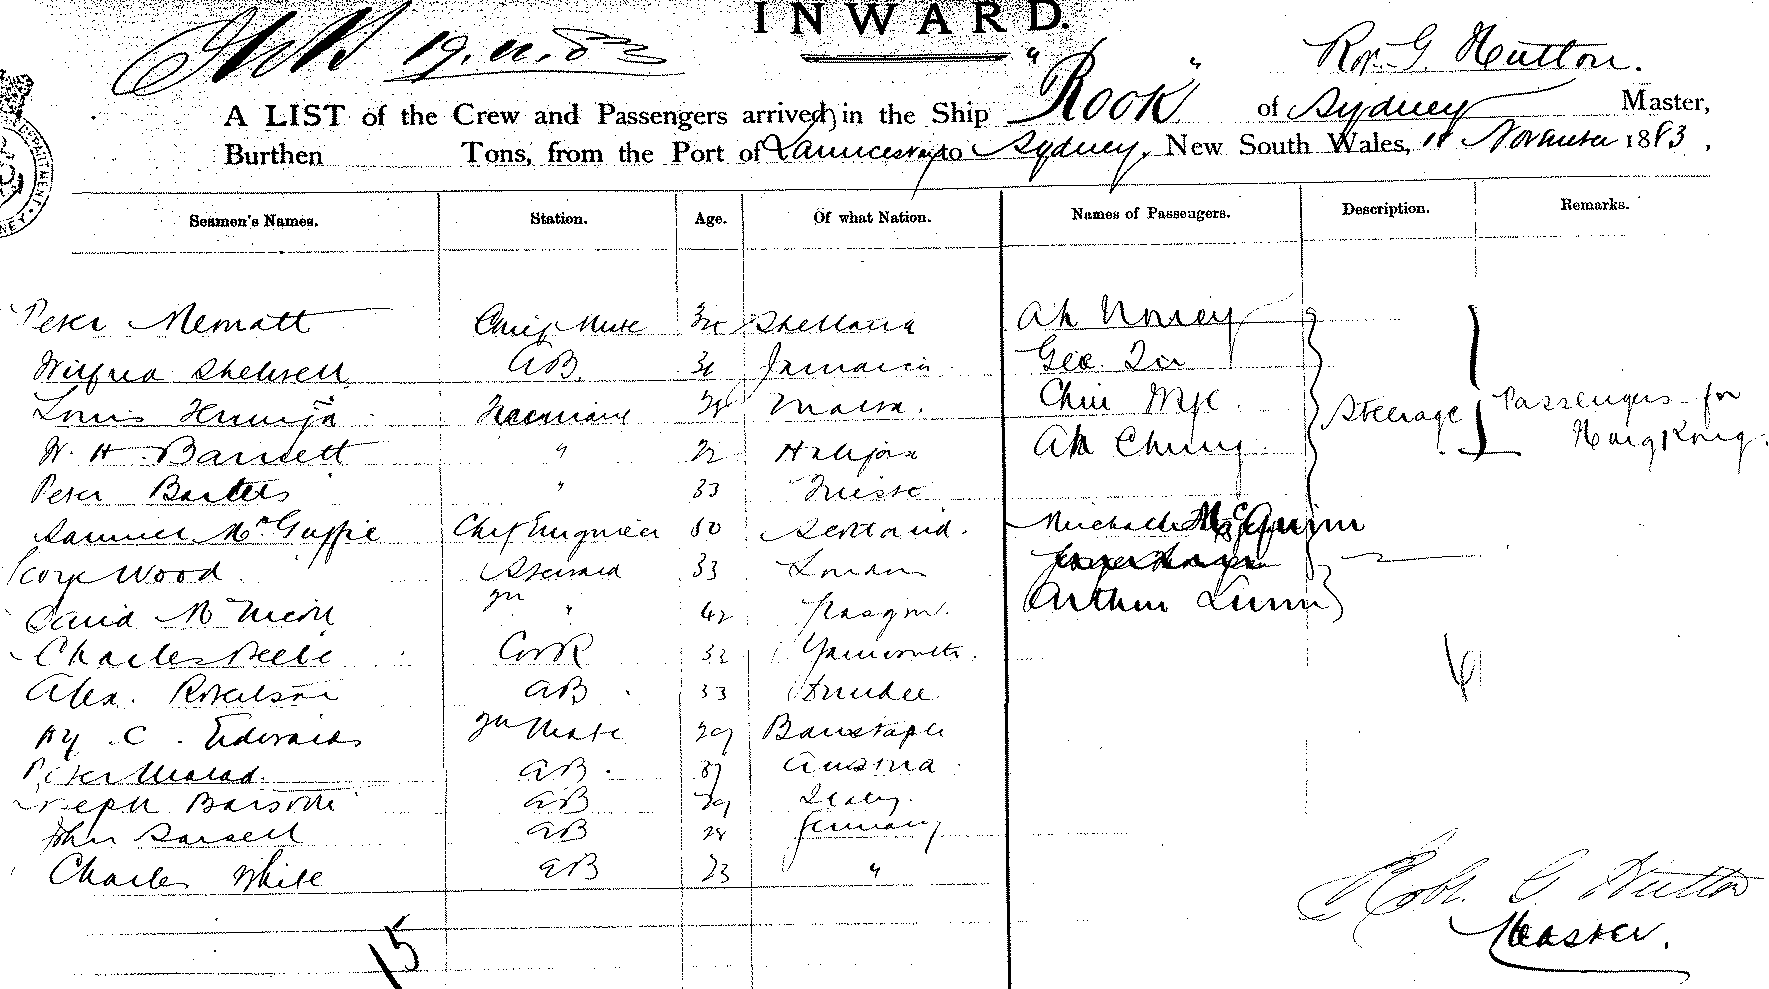 INWARD.
19.11.83
"Rook" Rob. G. Hutton.
A LIST of the Crew and Passengers arrived in the Ship of Sydney Master,
Burthen Tons, from the Port of Launceston to Sydney, New South Wales, 18 November 1883.
Seamen's Names. Station. Age. Of what Nation. Names of Passengers. Description. Remarks.
Peter Chief Mate Ah
AB Jamaica Geo.
Louis Fireman Malta. Chin Steerage Passengers for
W. H. Barnett " 22 Halifax Ah Chung Hong Kong.
Peter Bartels " 33
Samuel McGuffie Chf Engineer 50 Scotland. Michael McGuinn
Wood Steward 33 London
David McNicoll " 42 Glasgow. Arthur Lunn
Charles Beebe Cook 32 Yarmouth.
Alex. Robertson AB 33 Dundee
Hy. C. Edwards Mate 29 Barnstaple
Peter AB. 37 Austria.
Joseph AB 29 Italy.
John AB 28 Germany
Charles White AB 23 "
6
Robt. G. Hutton
Master.
15